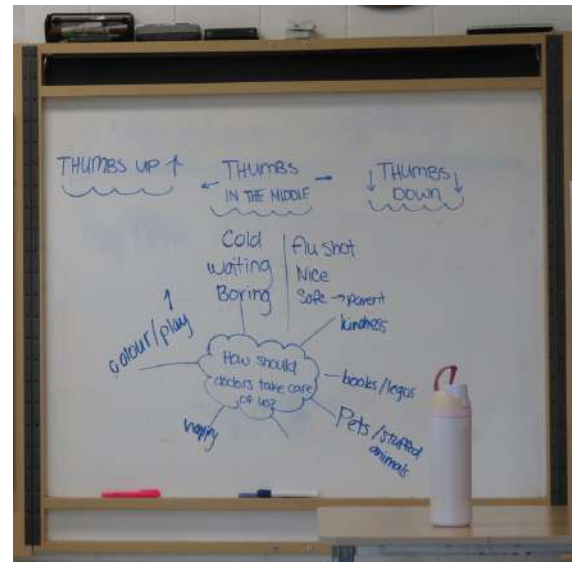 THUMBS UP ↑
← THUMBS →
IN THE MIDDLE
↓ THUMBS ↓
DOWN
Cold
waiting
Boring
Flu shot
Nice
Safe → parent
kindness
colour/play ↑
How should
doctors take care
of us?
books/legos
Pets/stuffed
animals
happy